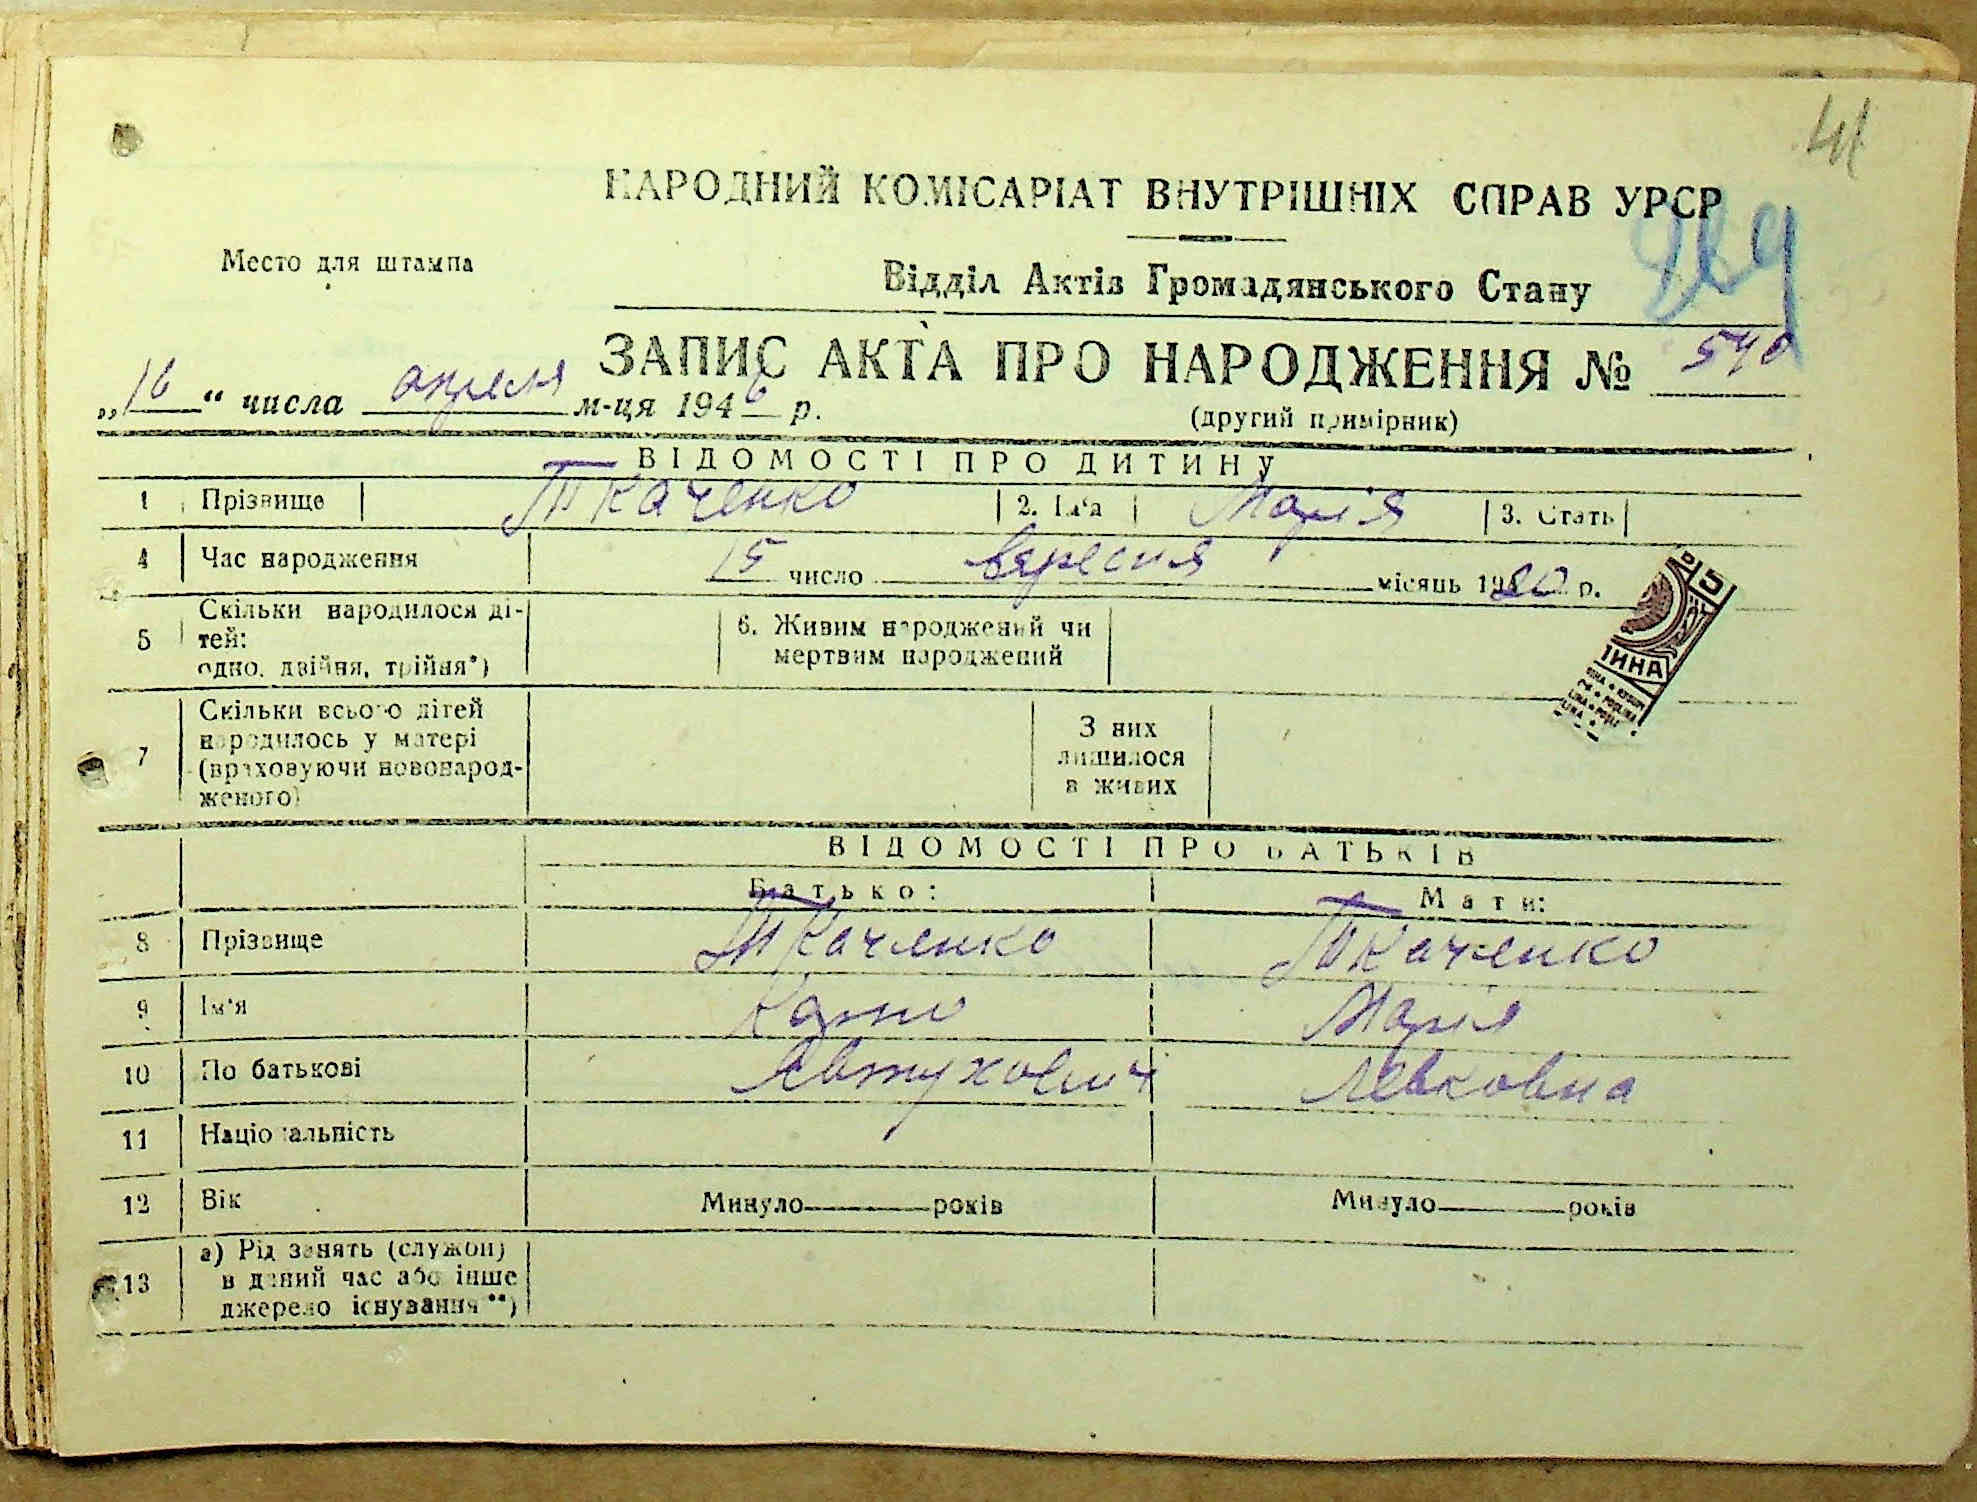 41
НАРОДНИЙ КОМІСАРІАТ ВНУТРІШНІХ СПРАВ УРСР
Место для штампа
Відділ Актів Громадянського Стану
ЗАПИС АКТА ПРО НАРОДЖЕННЯ № 540
„16“ числа апреля м-ця 1946 р.
(другий примірник)
ВІДОМОСТІ ПРО ДИТИНУ
1 Прізвище Ткаченко 2. Ім'я Марія 3. Стать
4 Час народження 15 число вересня місяць 1920 р.
5 Скільки народилося ді-
тей:
одно, двійня, трійня*)
6. Живим народжений чи
мертвим народжений
7 Скільки всього дітей
народилось у матері
(враховуючи новонарод-
женого)
З них
лишилося
в живих
ВІДОМОСТІ ПРО БАТЬКІВ
Батько: Мати:
8 Прізвище Ткаченко Ткаченко
9 Ім'я Карпо Марія
10 По батькові Явтухович Левковна
11 Національність
12 Вік Минуло років Минуло років
13 а) Рід занять (служби)
в даний час або інше
джерело існування**)